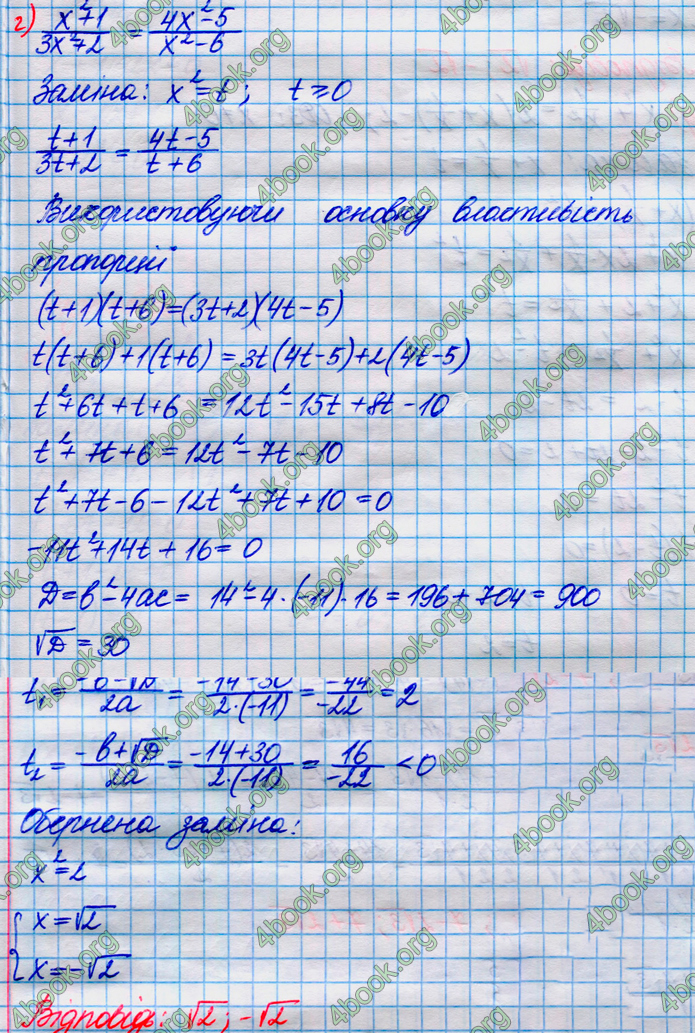 г) (x²+1)/(3x²+2) = (4x²-5)/(x²-6)
Заміна: x²=t; t≥0
(t+1)/(3t+2) = (4t-5)/(t+6)
Використовуючи основну властивість
пропорції
(t+1)(t+6)=(3t+2)(4t-5)
t(t+6)+1(t+6)=3t(4t-5)+2(4t-5)
t²+6t+t+6 =12t²-15t+8t-10
t²+7t+6=12t²-7t-10
t²+7t-6-12t²+7t+10=0
-11t²+14t+16=0
D=b²-4ac= 14²-4·(-11)·16=196+704=900
√D=30
t₁=(-b-√D)/2a=(-14-30)/(2·(-11))=-44/-22=2
t₂=(-b+√D)/2a=(-14+30)/(2·(-11))=16/-22<0
Обернена заміна:
x²=2
x=√2
x=-√2
Відповідь: √2; -√2
4book.org